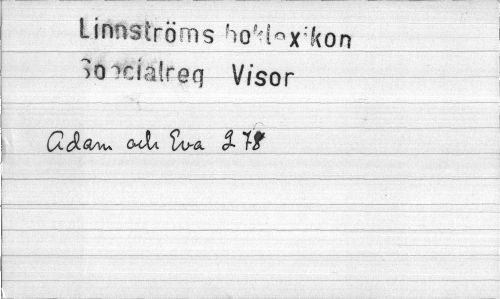 Linnströms boklexikon
Specialreg Visor
Adam och Eva 2 78